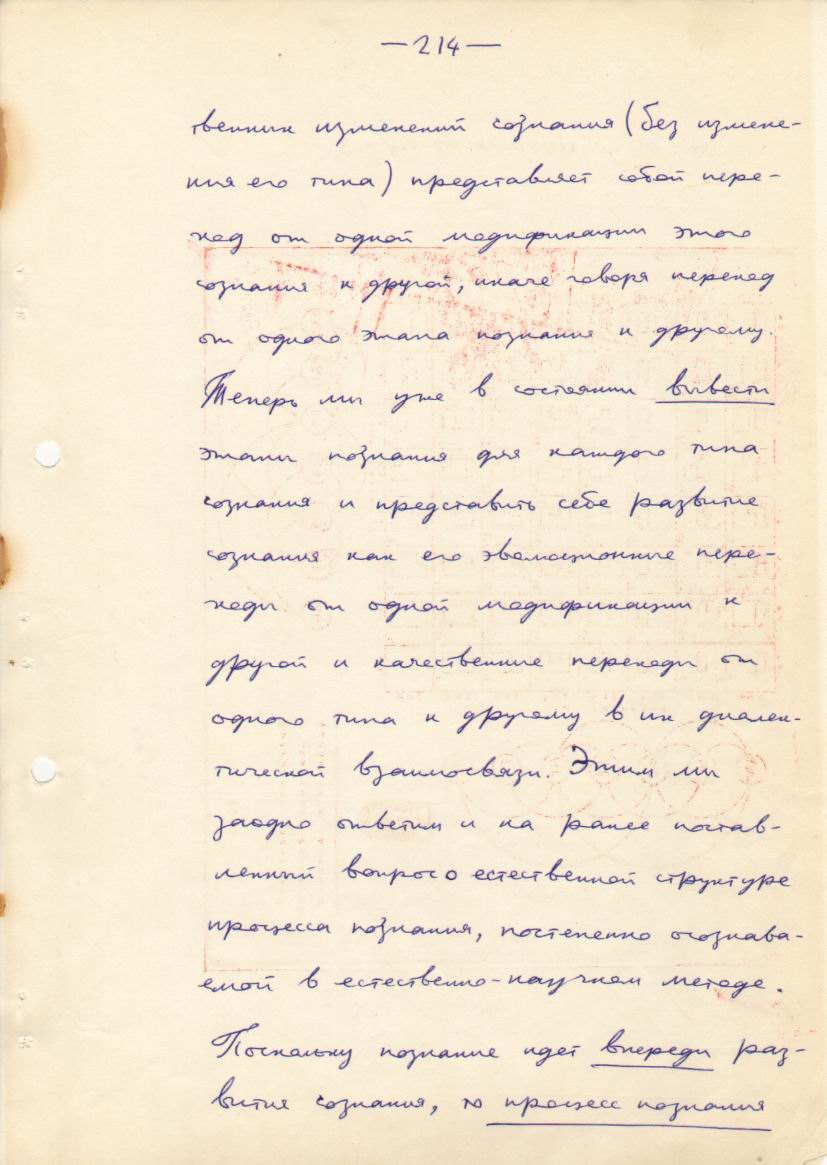 —214—
твенных изменений сознания (без измене-
ния его типа) представляет собой пере-
ход от одной модификации этого
сознания к другой, иначе говоря переход
от одного этапа познания к другому.
Теперь мы уже в состоянии вывести
этапы познания для каждого типа
сознания и представить себе развитие
сознания как его эволюционные пере-
ходы от одной модификации к
другой и качественные переходы от
одного типа к другому в их диалек-
тической взаимосвязи. Этим мы
заодно ответим и на ранее постав-
ленный вопрос о естественной структуре
процесса познания, постепенно осознава-
емой в естественно-научном методе.
Поскольку познание идет впереди раз-
вития сознания, то процесс познания